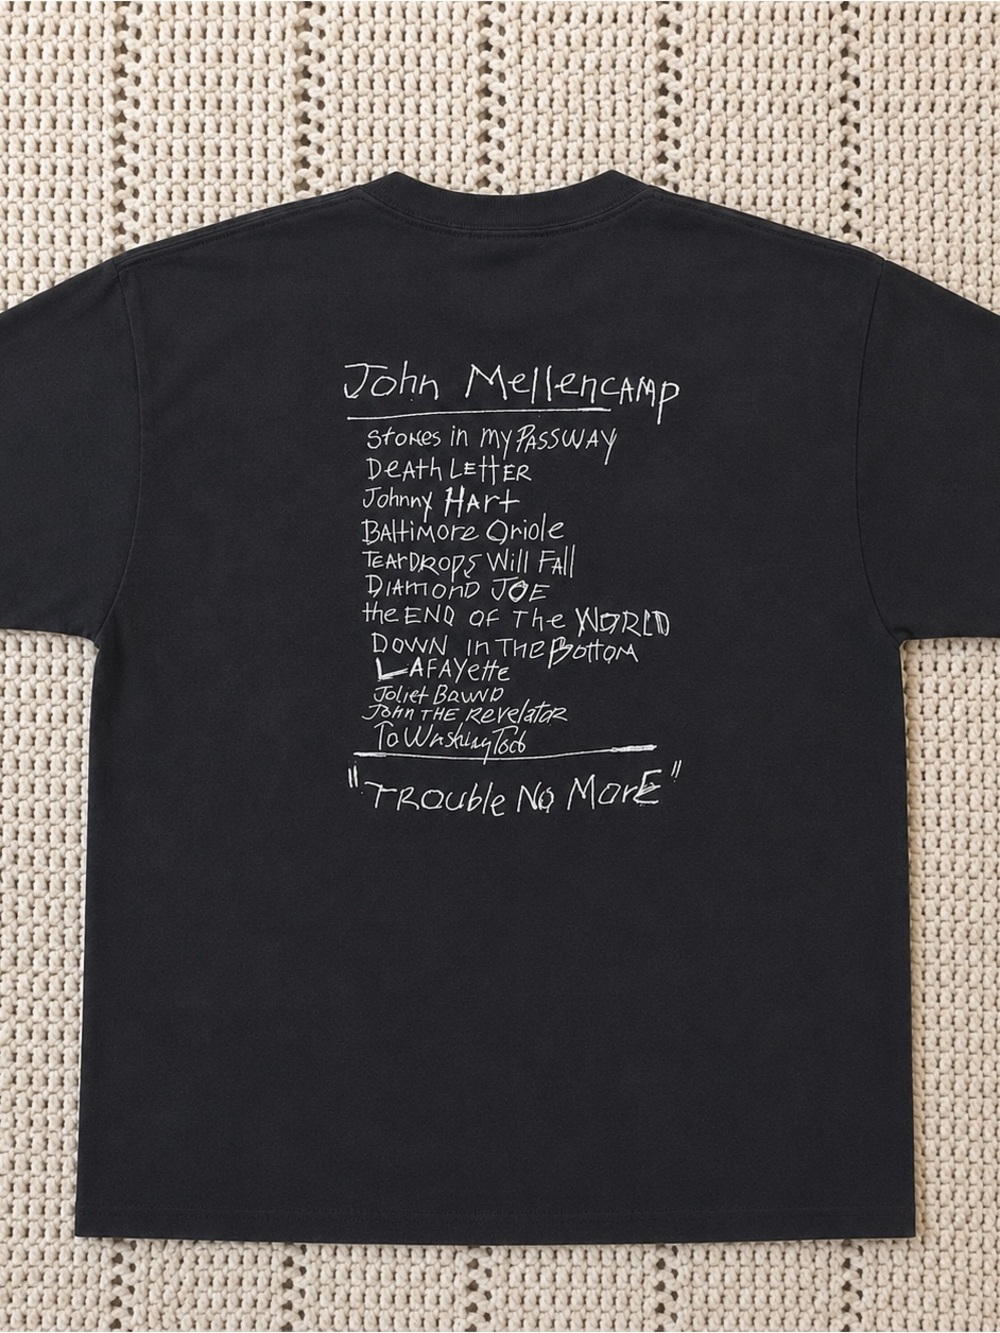 John Mellencamp
Stones in my Passway
Death Letter
Johnny Hart
Baltimore Oriole
Teardrops Will Fall
Diamond Joe
the End of The World
Down in The Bottom
Lafayette
Joliet Bound
John The Revelator
To
"Trouble No More"